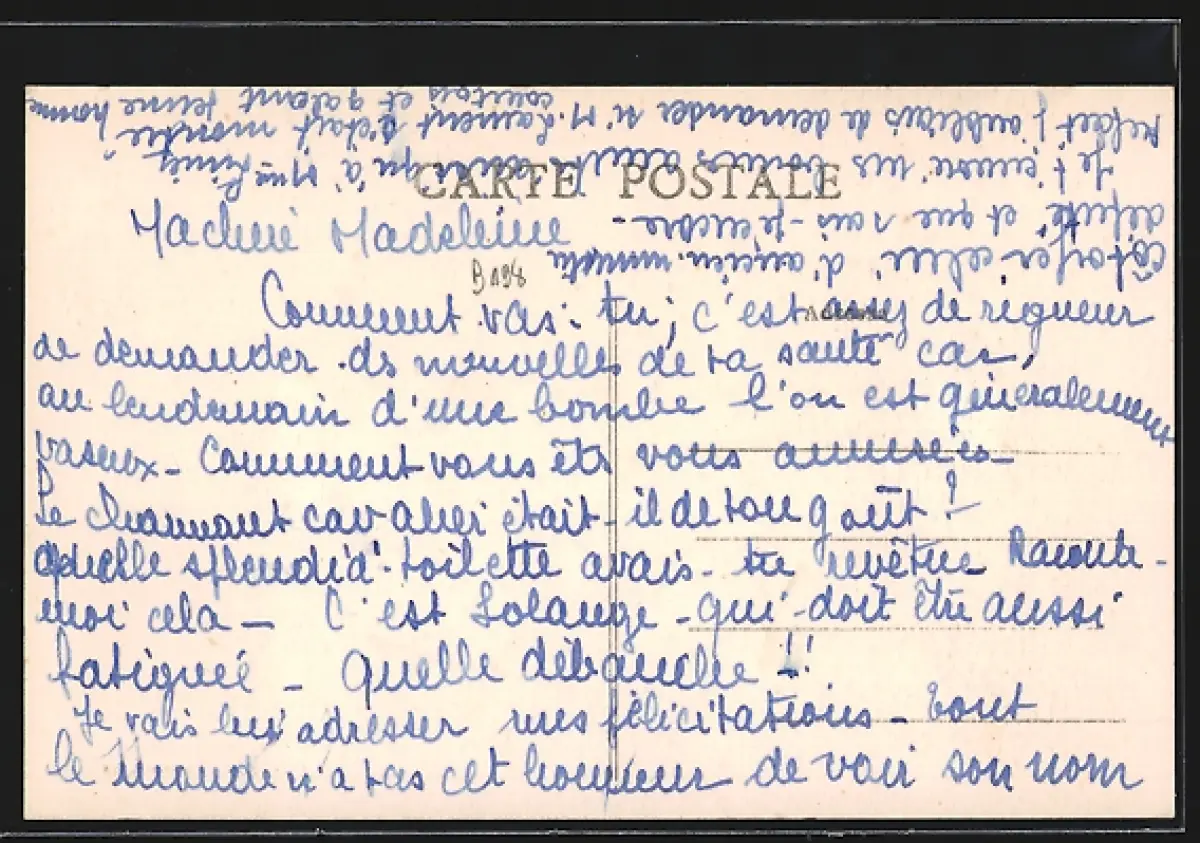 CARTE POSTALE
Ma chérie Madeleine
B198
Comment vas-tu; c'est assez de rigueur
de demander ds nouvelles de ta santé car,
au lendemain d'une bombe l'on est généralement
vaseux - Comment vous êts vous amusées -
Le charmant cavalier était-il de ton goût ?
Quelle splendid' toilette avais-tu revêtue Raconte-
moi cela - C'est Solange qui doit être aussi
fatiguée - Quelle débauche !!!
Je vais lui adresser mes félicitations - Tout
le monde n'a pas cet honneur de voir son nom
côtoyer celui d'ancien ministre
député et que sais-je encore -
Je t'envoie mes bons
j'oubliais de demander si M. Laurent s'était montré
courtois et galant jeune homme